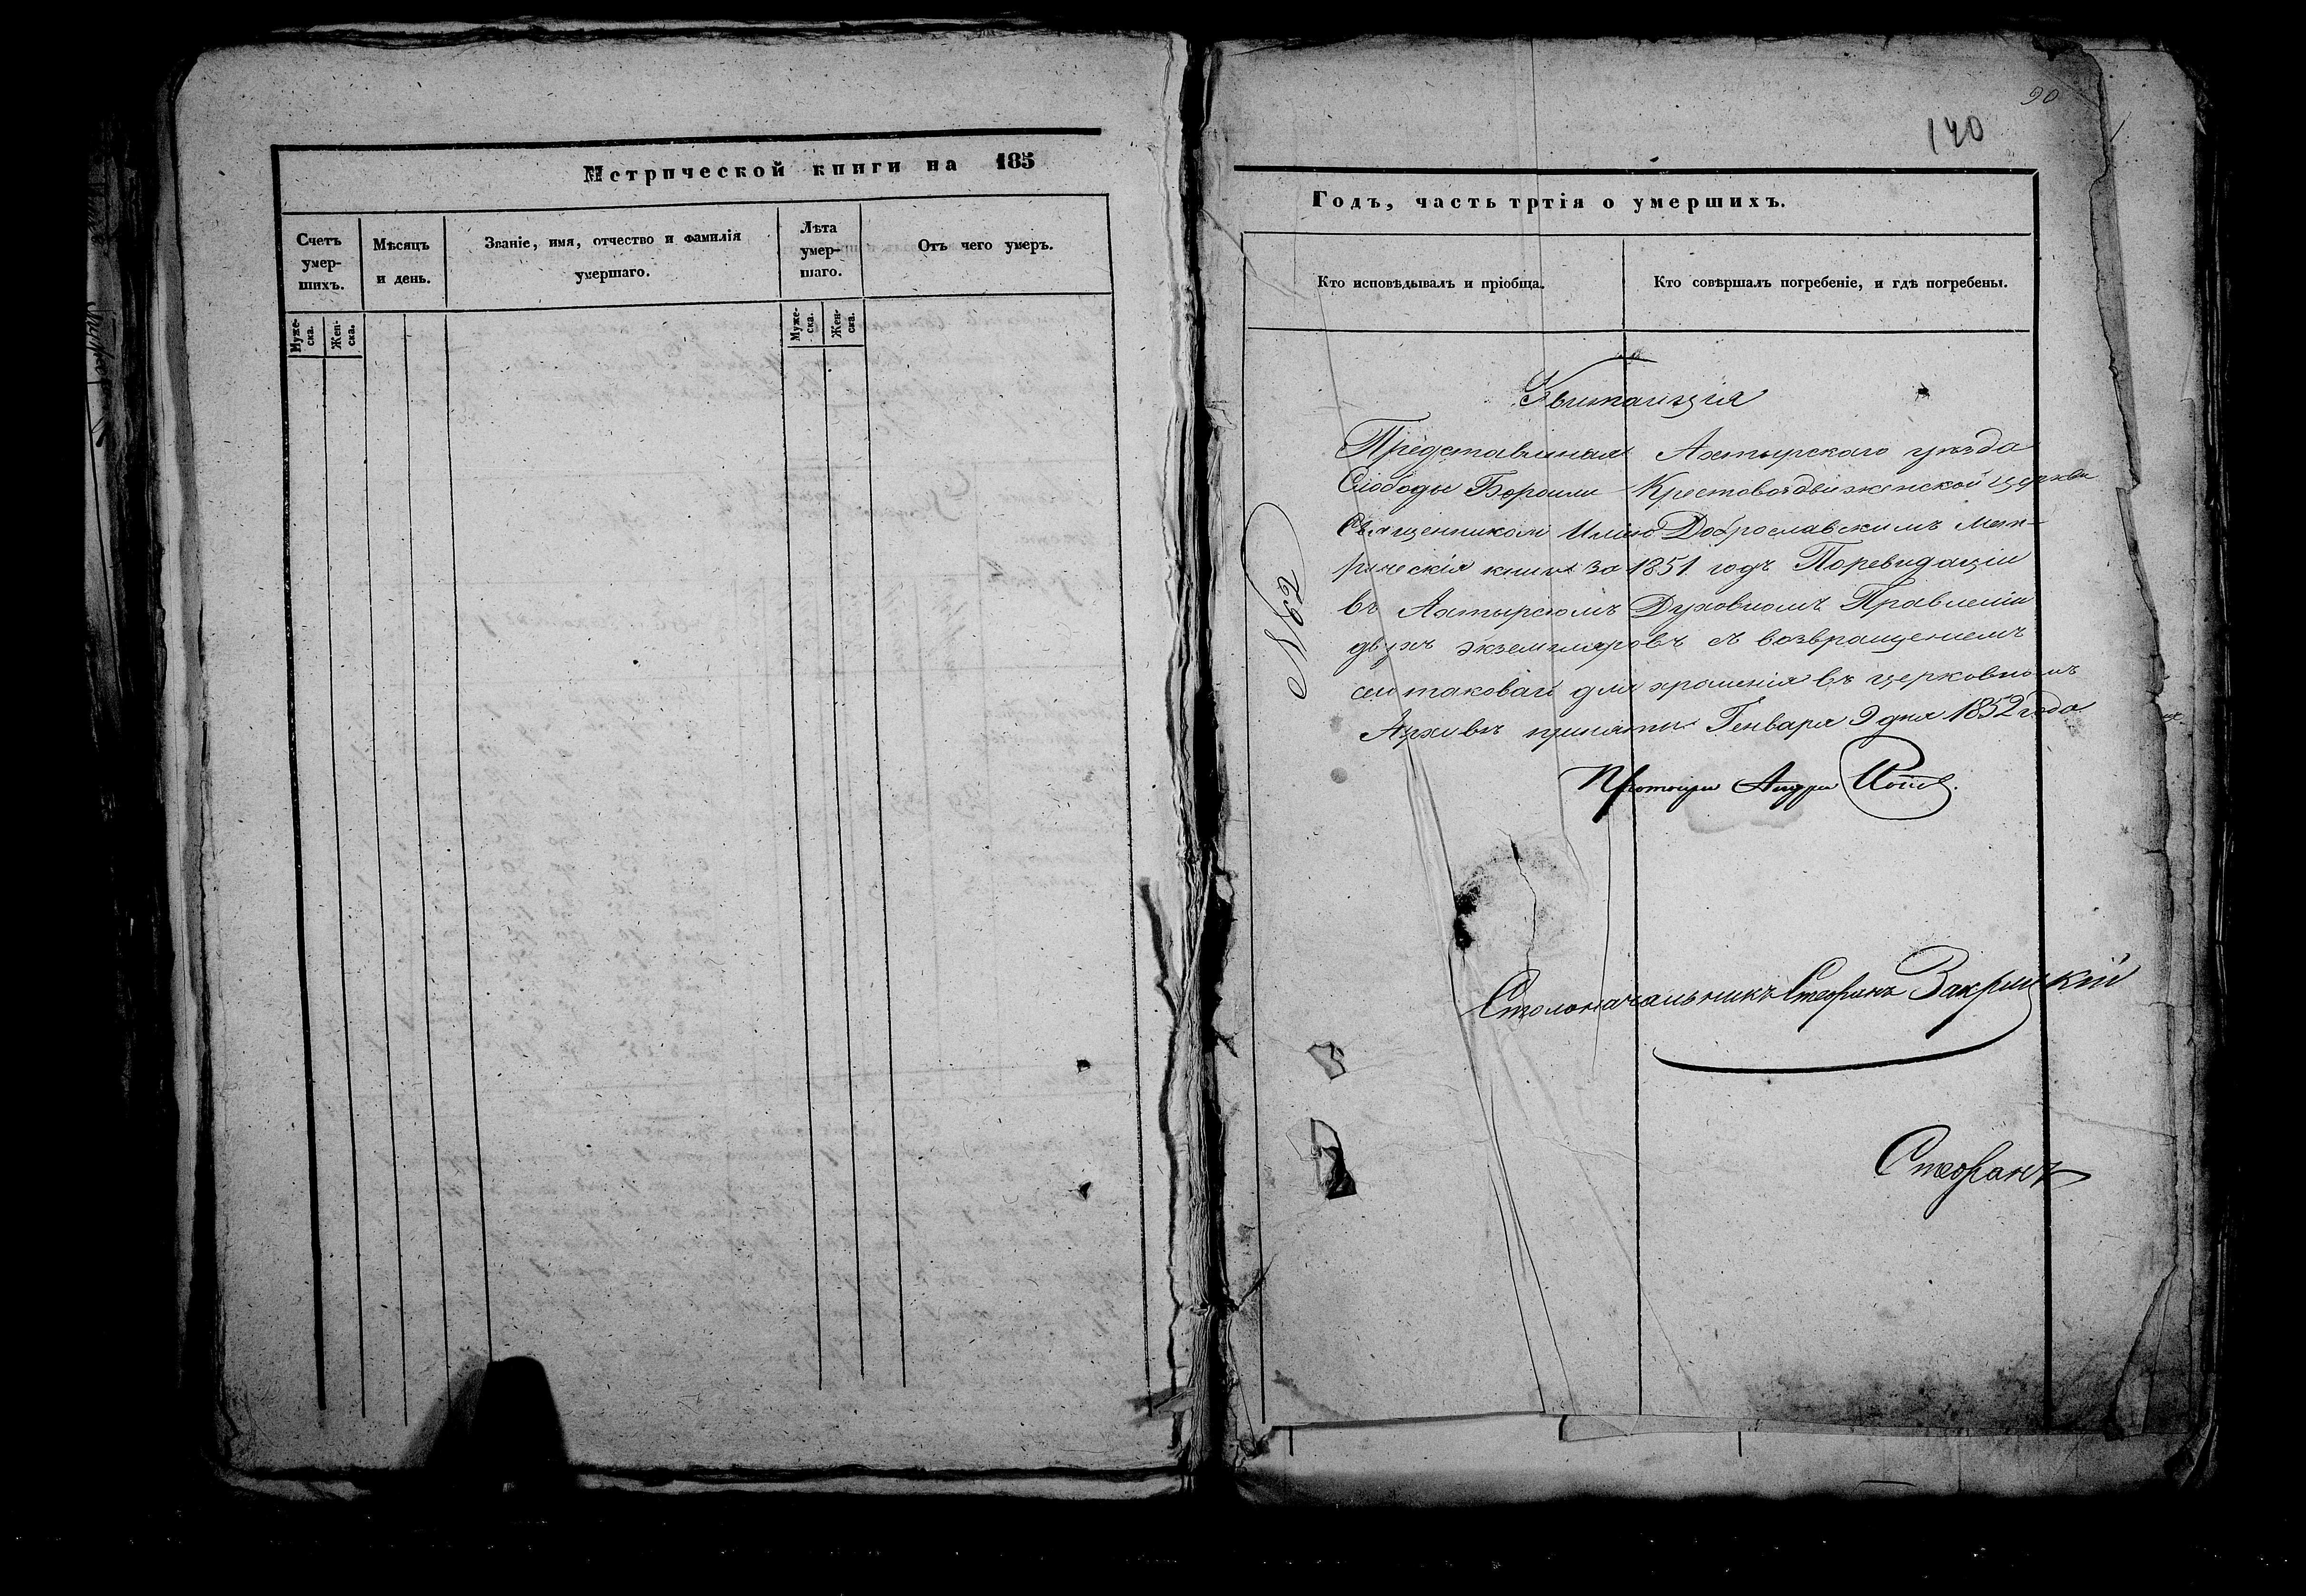 Метрической книги на 185
Счетъ умер- шихъ.
Мѣсяцъ и день.
Званіе, имя, отчество и фамилія умершаго.
Лѣта умер- шаго.
Отъ чего умеръ.
Муже- ска.
Жен- ска.
Муже- ска.
Жен- ска.
90
140
Годъ, часть тртія о умершихъ.
Кто исповѣдывалъ и пріобща.
Кто совѣршалъ погребеніе, и гдѣ погребены.
Квитанція
Представленныя Ахтырскаго уѣзда
Слободы Боромли Крестовоздвиженской церкви
Священникомъ Иліею Доброславскимъ Мет-
рическія книги за 1851 годъ Поревидаціи
въ Ахтырскомъ Духовномъ Правленіи
двухъ экземпляровъ съ возвращеніемъ
таковой для храненія въ церковномъ
Архивѣ приняты Генваря 9 дня 1852 года
№ 62
Протоіерей Андрей
Столоначальникъ Стефанъ Закрицкій
Стефанъ